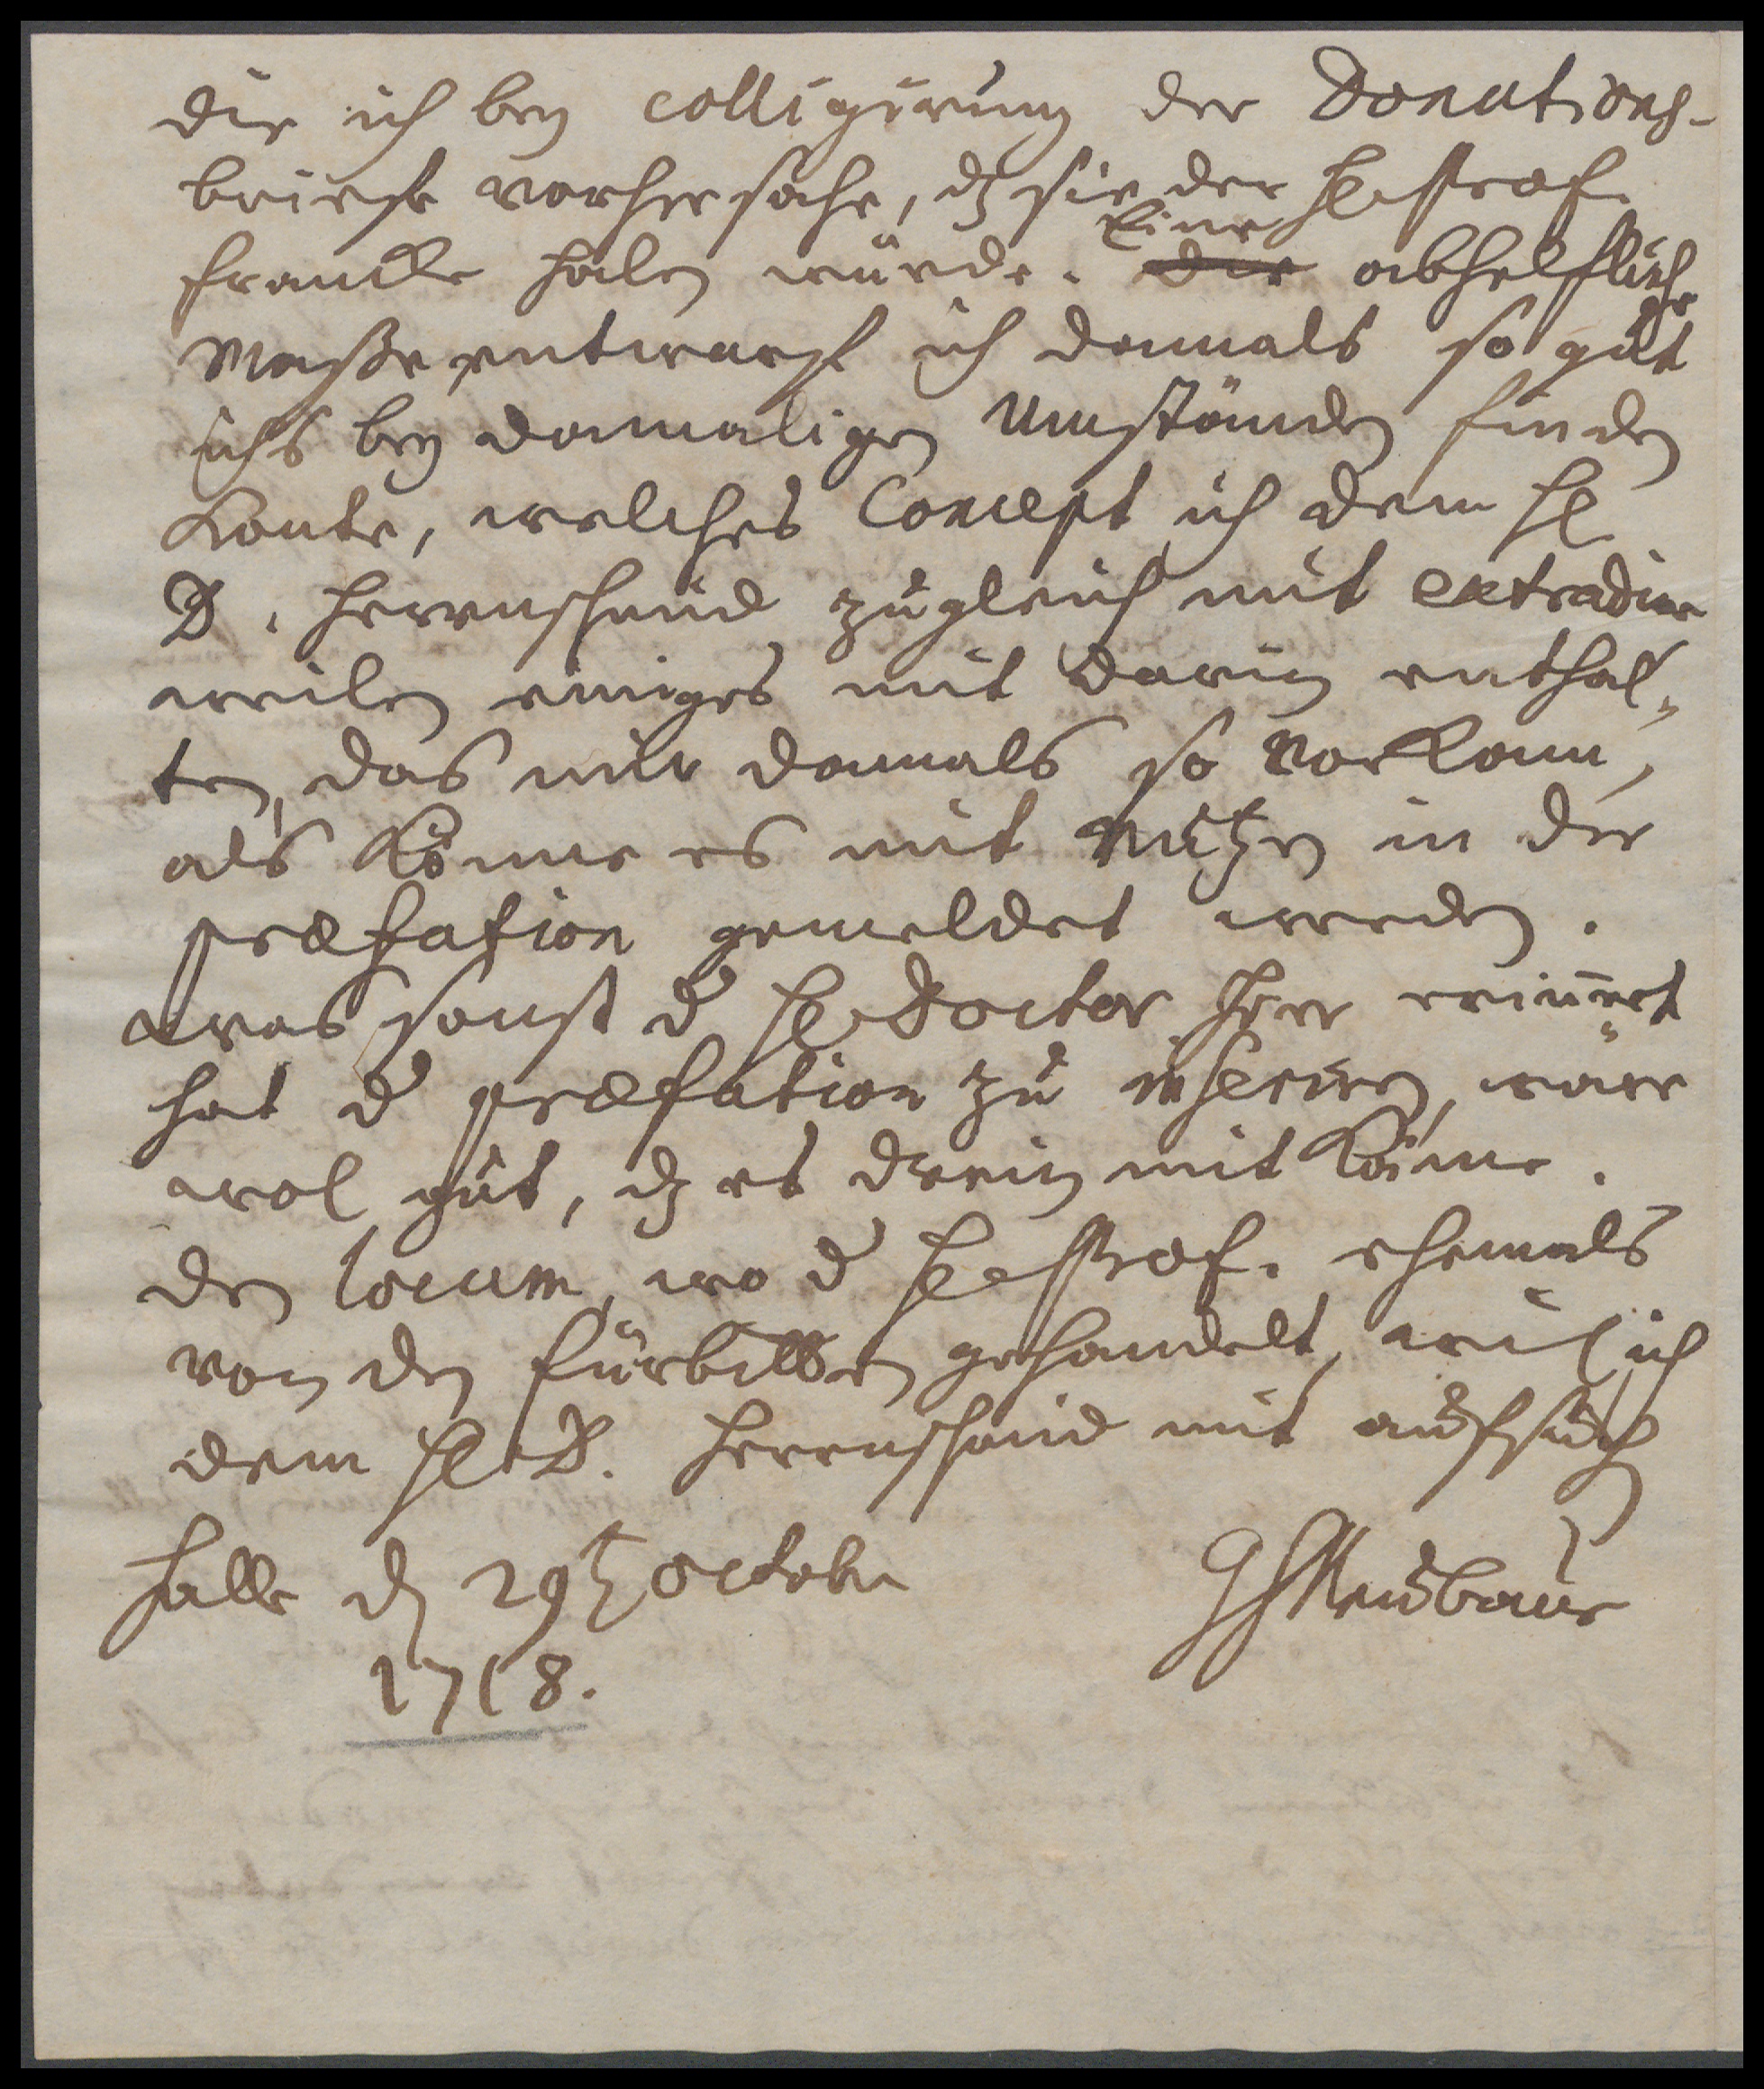 die ich bey colligirung der Donations-
briefe vorhersahe, dz sie der H. Prof.
Francke haben würde. Eine abhelfliche
Masse entwarf ich damals so gut
ichs bey damaligen Umständen finden
konte, welches Concept ich dem H.
D. Herrnschmid zugleich mit extradire
weilen einiges mit darin enthal-
ten, das mir damals so vorkam,
als könne es mit nutzen in der
præfation gemeldet werden.
Was sonst d H. Doctor Herr erinnert
hat d præfation zu inseriren, wäre
wol gut, dz es drein mit käme.
den locum, wo d H. Prof. ehemals
von den fürbitten gehandelt, wil ich
dem H. D. Herrnschmid mit aufsuchen
Halle d 29t October
GHNeubauer
1718.